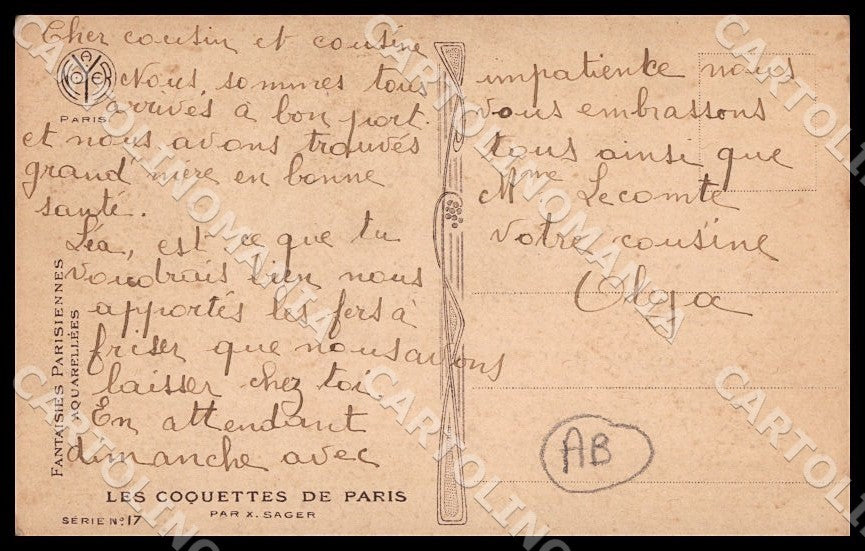 Cher cousin et cousine
Nous sommes tous
arrivés à bon port.
et nous avons trouvés
grand mère en bonne
santé.
Léa, est ce que tu
voudrais bien nous
apportés les fers à
friser que nous avons
laisser chez toi
En attendant
dimanche avec
impatience nous
vous embrassons
tous ainsi que
Mme Lecomte
Votre cousine
Olga
PARIS
FANTAISIES PARISIENNES
AQUARELLÉES
LES COQUETTES DE PARIS
PAR X. SAGER
SÉRIE No 17
AB
CARTOLINOMANIA
CARTOLINOMANIA
CARTOLINOMANIA
CARTOLINOMANIA